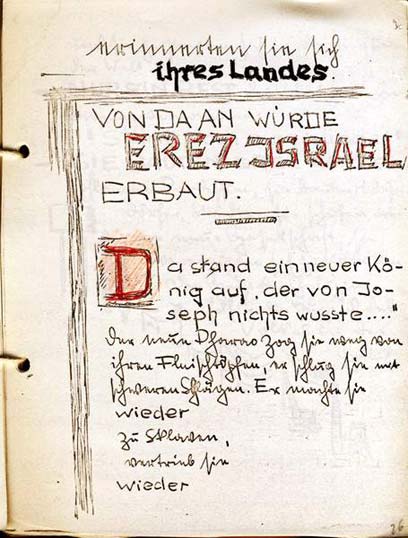 erinnerten sie sich
ihres Landes.
VON DA AN WÜRDE
EREZ JSRAEL
ERBAUT.
Da stand ein neuer Kö-
nig auf, der von Jo-
seph nichts wusste...."
Der neue Pharao zog sie weg von
ihren Fleischtöpfen, er schlug sie mit
schweren Schlägen. Er machte sie
wieder
zu Sklaven,
vertrieb sie
wieder
26